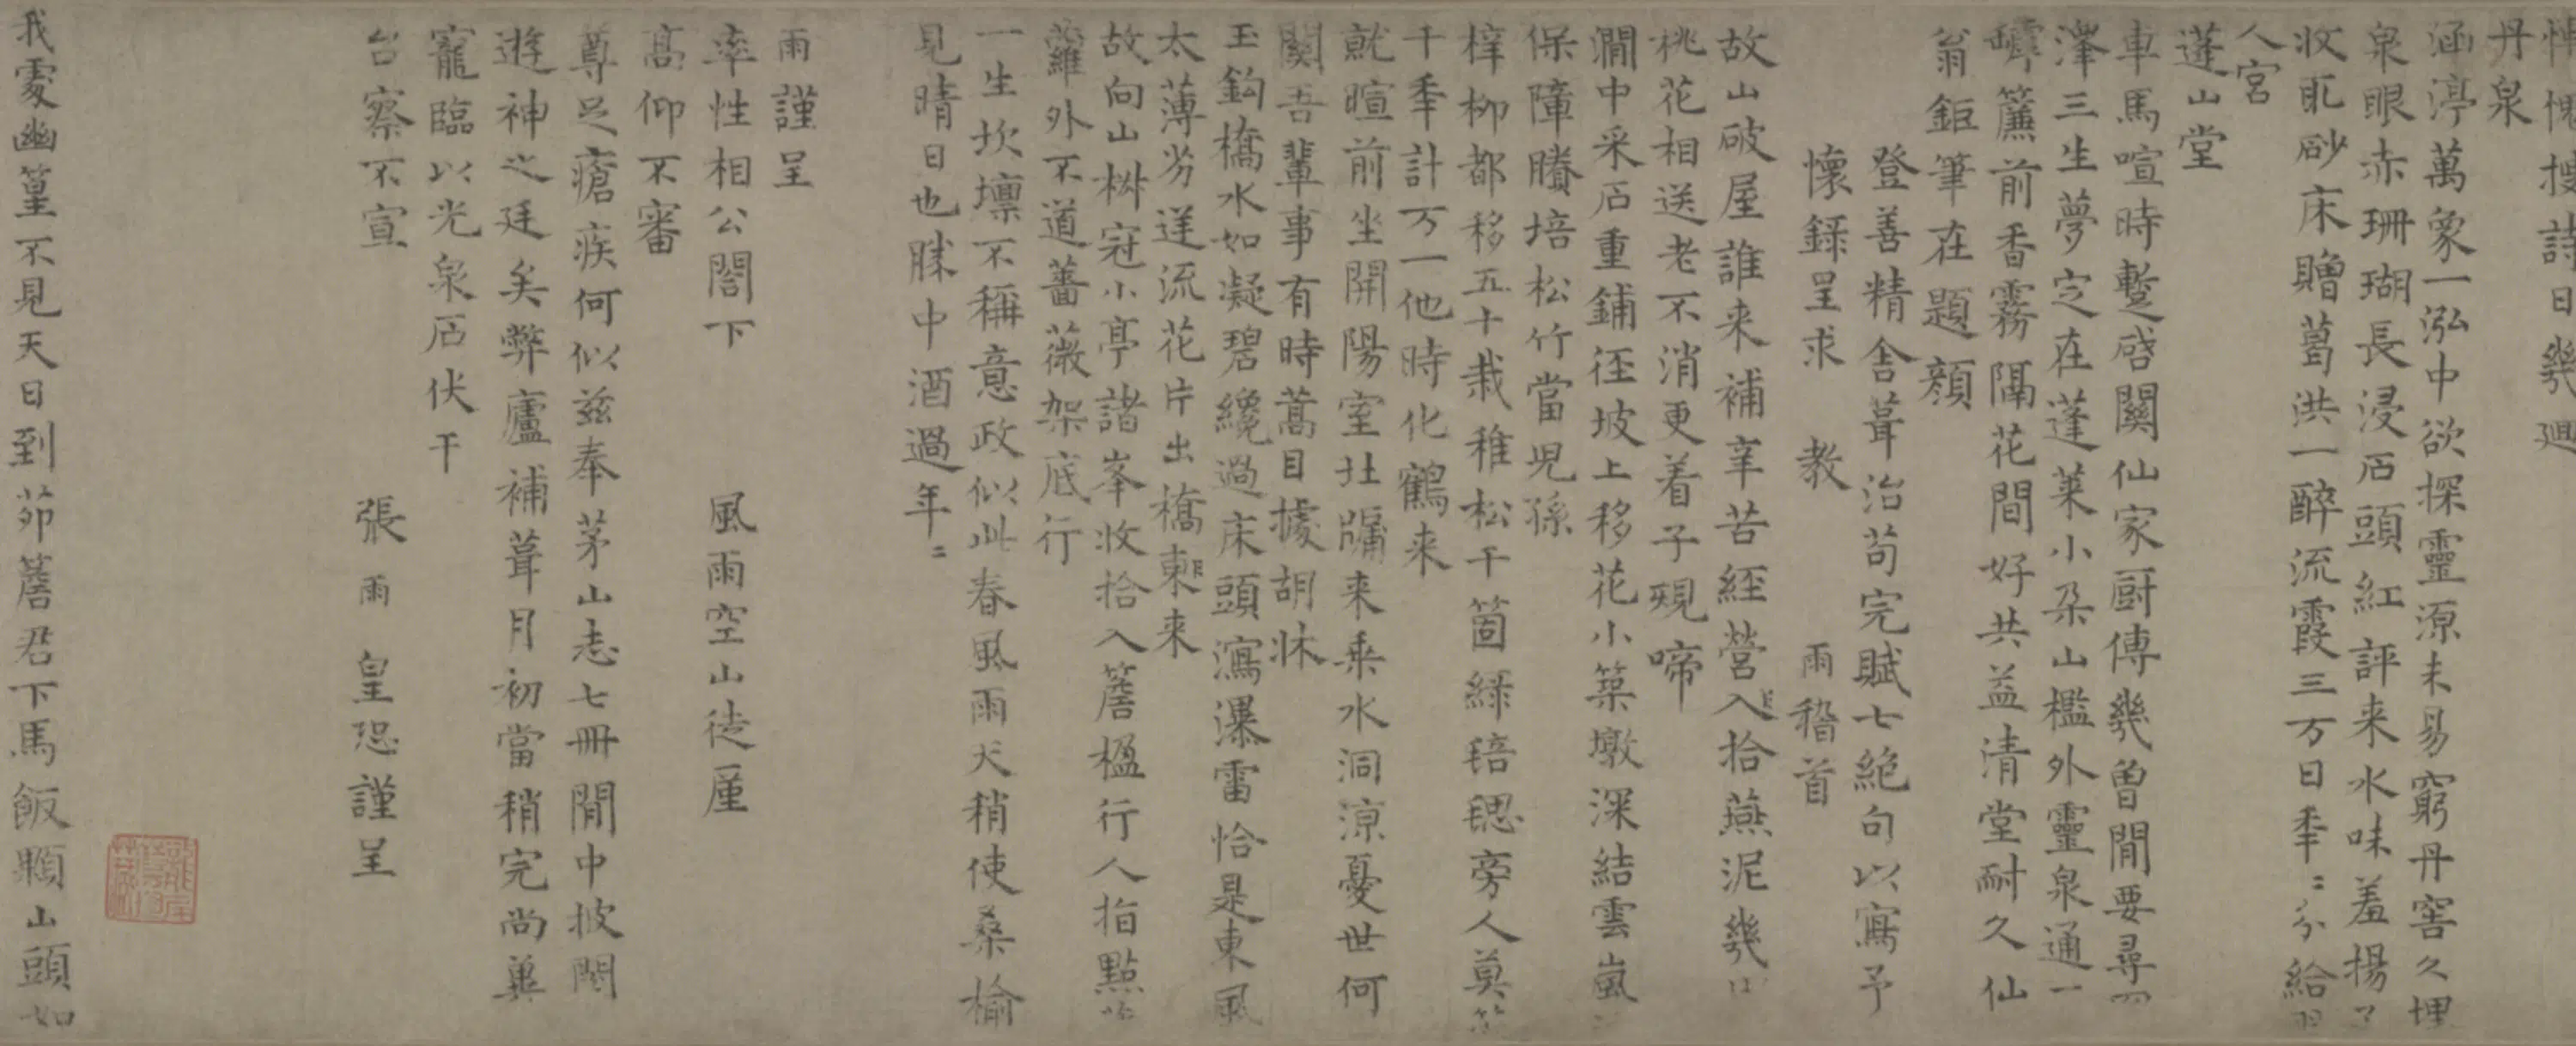 愧搜詩日幾迴
丹泉
涵渟萬象一泓中欲探靈源未易窮丹窖久埋
泉眼赤珊瑚長浸石頭紅評来水味羞揚子
收取砂床贈葛洪一醉流霞三万日秊〻分給
人宮
蓬山堂
車馬喧時蹔啓關仙家厨傳幾曽閒要尋四
澤三生夢定在蓬萊小朶山檻外靈泉通一
罅簾前香霧隔花間好共益清堂耐久仙
翁鉅筆在題顏
登善精舍葺治苟完賦七絶句以寫予
懷録呈求 教 雨稽首
故山破屋誰来補辛苦經營入拾燕泥幾
桃花相送老不消更着子規啼
澗中采石重鋪徑坡上移花小築墩深結雲嵐
保障牋培松竹當児孫
樟柳都移五十栽稚松千箇緑毰毸旁人莫
千秊計万一他時化鶴来
就暄前坐開陽室壯牖来乗水洞凉憂世何
關吾輩事有時蒿目據胡床
玉鈎橋水如凝碧纔過床頭瀉瀑雷恰是東風
太薄劣送流花片出橋東来
故向山樹冠小亭諸峯收拾入簷楹行人指點
蘿外不道薔薇架底行
一生坎壈不稱意政似此春風雨天稍使桑榆
見晴日也勝中酒過年〻
雨謹呈
率性相公閤下 風雨空山徒厪
髙仰不審
尊足瘡疾何似兹奉茅山志七冊閒中披閱
遊神之廷矣弊廬補葺月初當稍完尚冀
寵臨以光泉石伏干
台察不宣 張雨皇恐謹呈
我處幽篁不見天日到茆簷君下馬飯顆山頭如